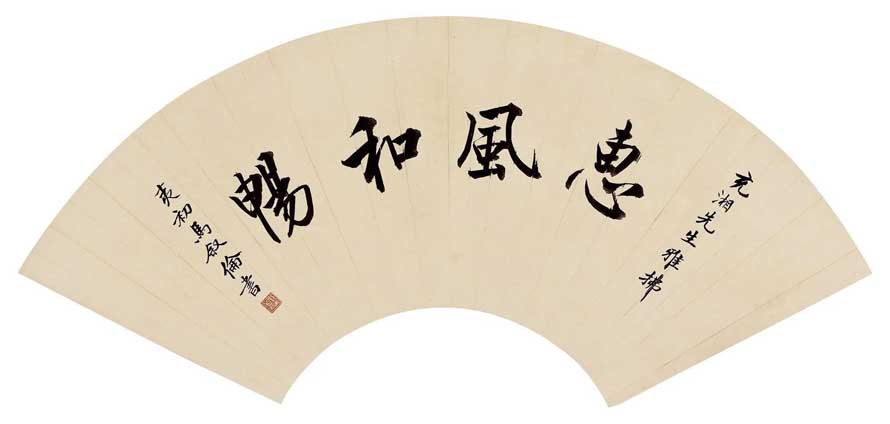 充湘先生雅拂
惠風和暢
夷初馬叙倫書